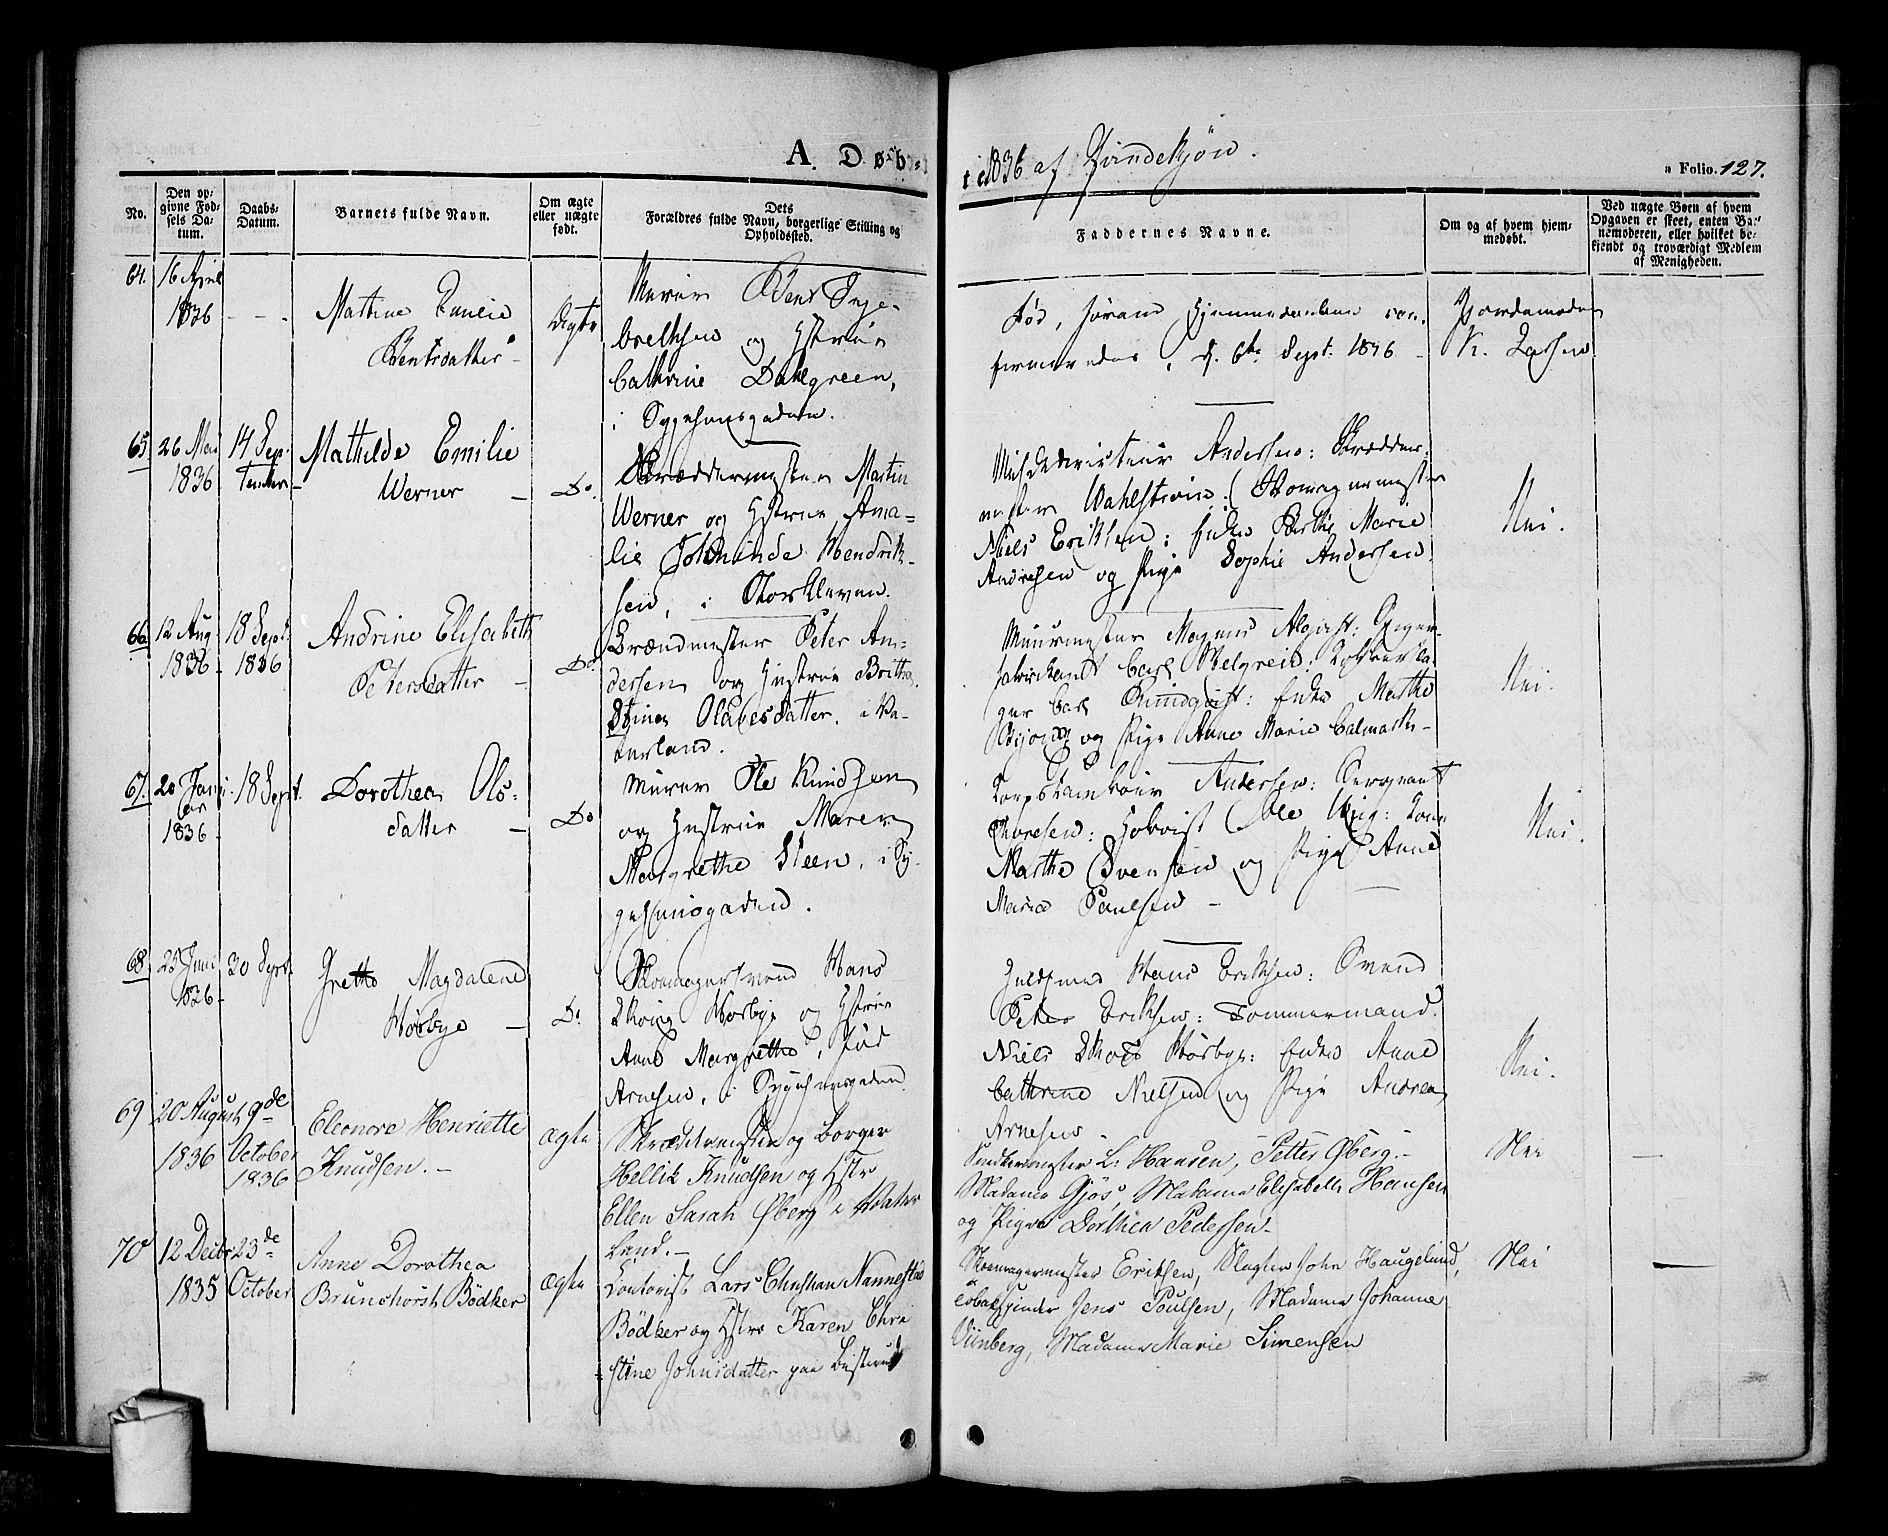 A. Døb-
te 1836 af Qvindekjøn.
a Folio. 127.
No.
Den op-
givne Fød-
sels Da-
tum.
Daabs-
Datum.
Barnets fulde Navn.
Om ægte
eller uægte
født.
Dets
Forældres fulde Navn, borgerlige Stilling og
Opholdssted.
Faddernes Navne.
Om og af hvem hjem-
medøbt.
Ved uægte Børn af hvem
Opgaven er skeet, enten Bar-
nemoderen, eller hvilket be-
kjendt og troværdigt Medlem
af Menigheden.
64.
16 April
1836
- - -
Mathine Emilie
Bentsdatter
Ægte
Murer Bent Inge-
brethsen og Hstrue
Cathrine Dahlgreen,
i Sygehuusgaden.
Død, førend Hjemmedaaben con-
firmeredes, d. 6te Sept. 1836 -
Jordemoder
K. Larsen
65
26 Mai
1836
14 Sep-
tember
Mathilde Emilie
Werner -
Do.
Skræddermester Martin
Werner og Hstrue Ama-
lie Hendrik-
sen, i Storkleven.
Andersen: Skrædder-
mester Wahlstrøm: Skomagermester
Niels Eriksen: Enke Berthe Marie
Andresen og Pige Sophie Andersen.
Nei.
66
12 Aug
1836
18 Sept.
1836
Andrine Elisabeth
Petersdatter -
Do
Brændmester Peter An-
dersen og Hustrue Britha
Stine Olavesdatter, i Va-
terland.
Muurmester Mogens Alqvist:
fabrikant Carl
ger Carl Rundqvist: Enke Marthe
og Pige Anne Marie Calmark-
Nei.
67.
20 Janu-
ar
1836
18 Sept.
Dorothea Ols-
datter -
Do
Murer Ole Knudsen
og Hustrue Maren
Margrethe Steen, i Sy-
gehuusgaden.
Korpstambour Andersen: Sergeant
Thoresen: Ole Wiig: Kone
Marthe Svensen og Pige Anne
Maria Paulsen -
Nei.
68
25 Juni
1836
30 Sept.
Grethe Magdalene
Hørbye -
Do.
Skomagersvend Hans
Hørbye og Hstrue
Anne Margrethe, fød
Arnesen, i Sygehuusgaden
Hans Eriksen: Svend
Peter Eriksen: Tømmermand
Niels Hørbye: Enke Anne
Cathrine Nielsen og Pige Andrea
Arnesen -
Nei.
69
20 August
1836
9de
October
1836
Eleonore Henriette
Knudsen. -
ægte
Skræddermester og Borger
Hellik Knudsen og Hstr
Ellen Sarah Øberg i Vater
land. -
Snedkermester L: Hansen, Petter Øberg. -
Madame Gjøs, Madame Elisabeth Hansen
og Pige Dorthea Pedersen -
Nei
70
12 Decbr
1835
23de
October
Anne Dorothea
Brunchorst Bödker
ægte
Contorist Lars Christian Nannestad
Bödker og Hstru Karen Chri
stine Johnsdatter paa
Skomagermester Eriksen, Slagter John Haugelund,
Tobakspinder Jens Poulsen, Madame Johanne
Viinberg, Madame Marie Simensen
Nei